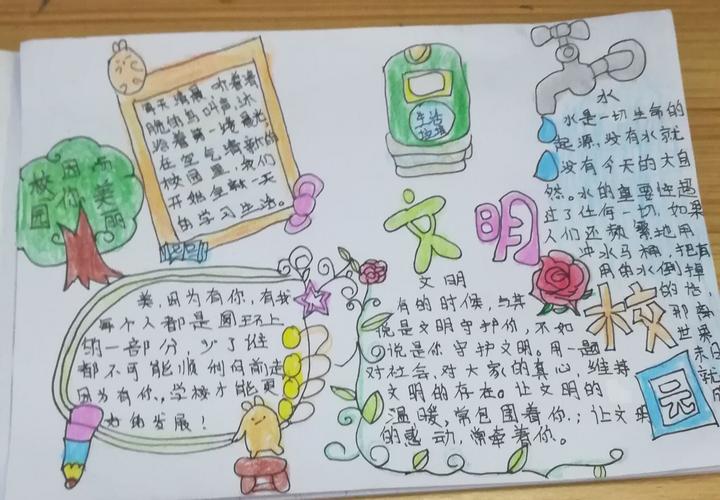 校园
因你
而
美丽
每天清晨,听着清
脆的鸟叫声,沐
浴着第一缕晨光,
在空气清新的
校园里,我们
开始全新一天
的学习生活。
生活
垃圾
文明
校园
水
水是一切生命的
起源,没有水就
没有今天的大自
然。水的重要性超
过了任何一切,如果
人们还频繁地用
冲水马桶,把有
用的水倒掉
的话,
那离
世界
末日
就
类,因为有你,有我
每个人都是圆环上
的一部分 少了谁
都不可能顺利向前走
因为有你,学校才能更
好的发展!
文明
有的时候,与其
说是文明守护你,不如
说是你守护文明。用一颗
对社会,对大家的真心,维持
文明的存在。让文明的
温暖,常包围着你;让文明
的感动,常牵着你。